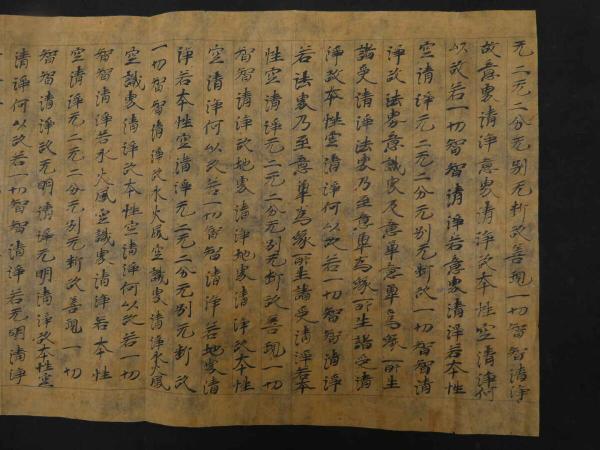 无二无二分无別无断故善現一切智智清淨
故意界清淨意界清淨故本性空清淨何
以故若一切智智清淨若意界清淨若本性
空清淨无二无二分无別无断故一切智智清
淨故法界意識界及意觸意觸為緣所生
諸受清淨法界乃至意觸為緣所生諸受清
淨故本性空清淨何以故若一切智智清淨
若法界乃至意觸為緣所生諸受清淨若本
性空清淨无二无二分无別无断故善現一切
智智清淨故地界清淨地界清淨故本性
空清淨何以故若一切智智清淨若地界清
淨若本性空清淨无二无二分无別无断故
一切智智清淨故水火風空識界清淨水火風
空識界清淨故本性空清淨何以故若一切
智智清淨若水火風空識界清淨若本性
空清淨无二无二分无別无断故善現一切
智智清淨故无明清淨无明清淨故本性空
清淨何以故若一切智智清淨若无明清淨